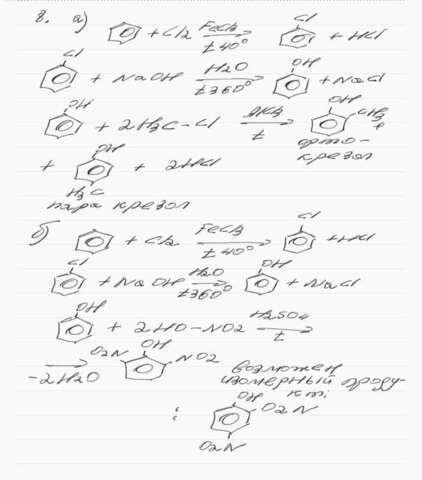 8. а) + Cl2 FeCl3 t 40° Cl + HCl
Cl + NaOH H2O t 360° OH + NaCl
OH + 2H3C-Cl AlCl3 t OH CH3 +
орто-крезол
+ OH H3C + 2HCl
пара крезол
б) + Cl2 FeCl3 t 40° Cl + HCl
Cl + NaOH H2O t 360° OH + NaCl
OH + 2HO-NO2 H2SO4 t
-2H2O O2N OH NO2 возможен
изомерный проду-
кт:
: OH O2N
O2N